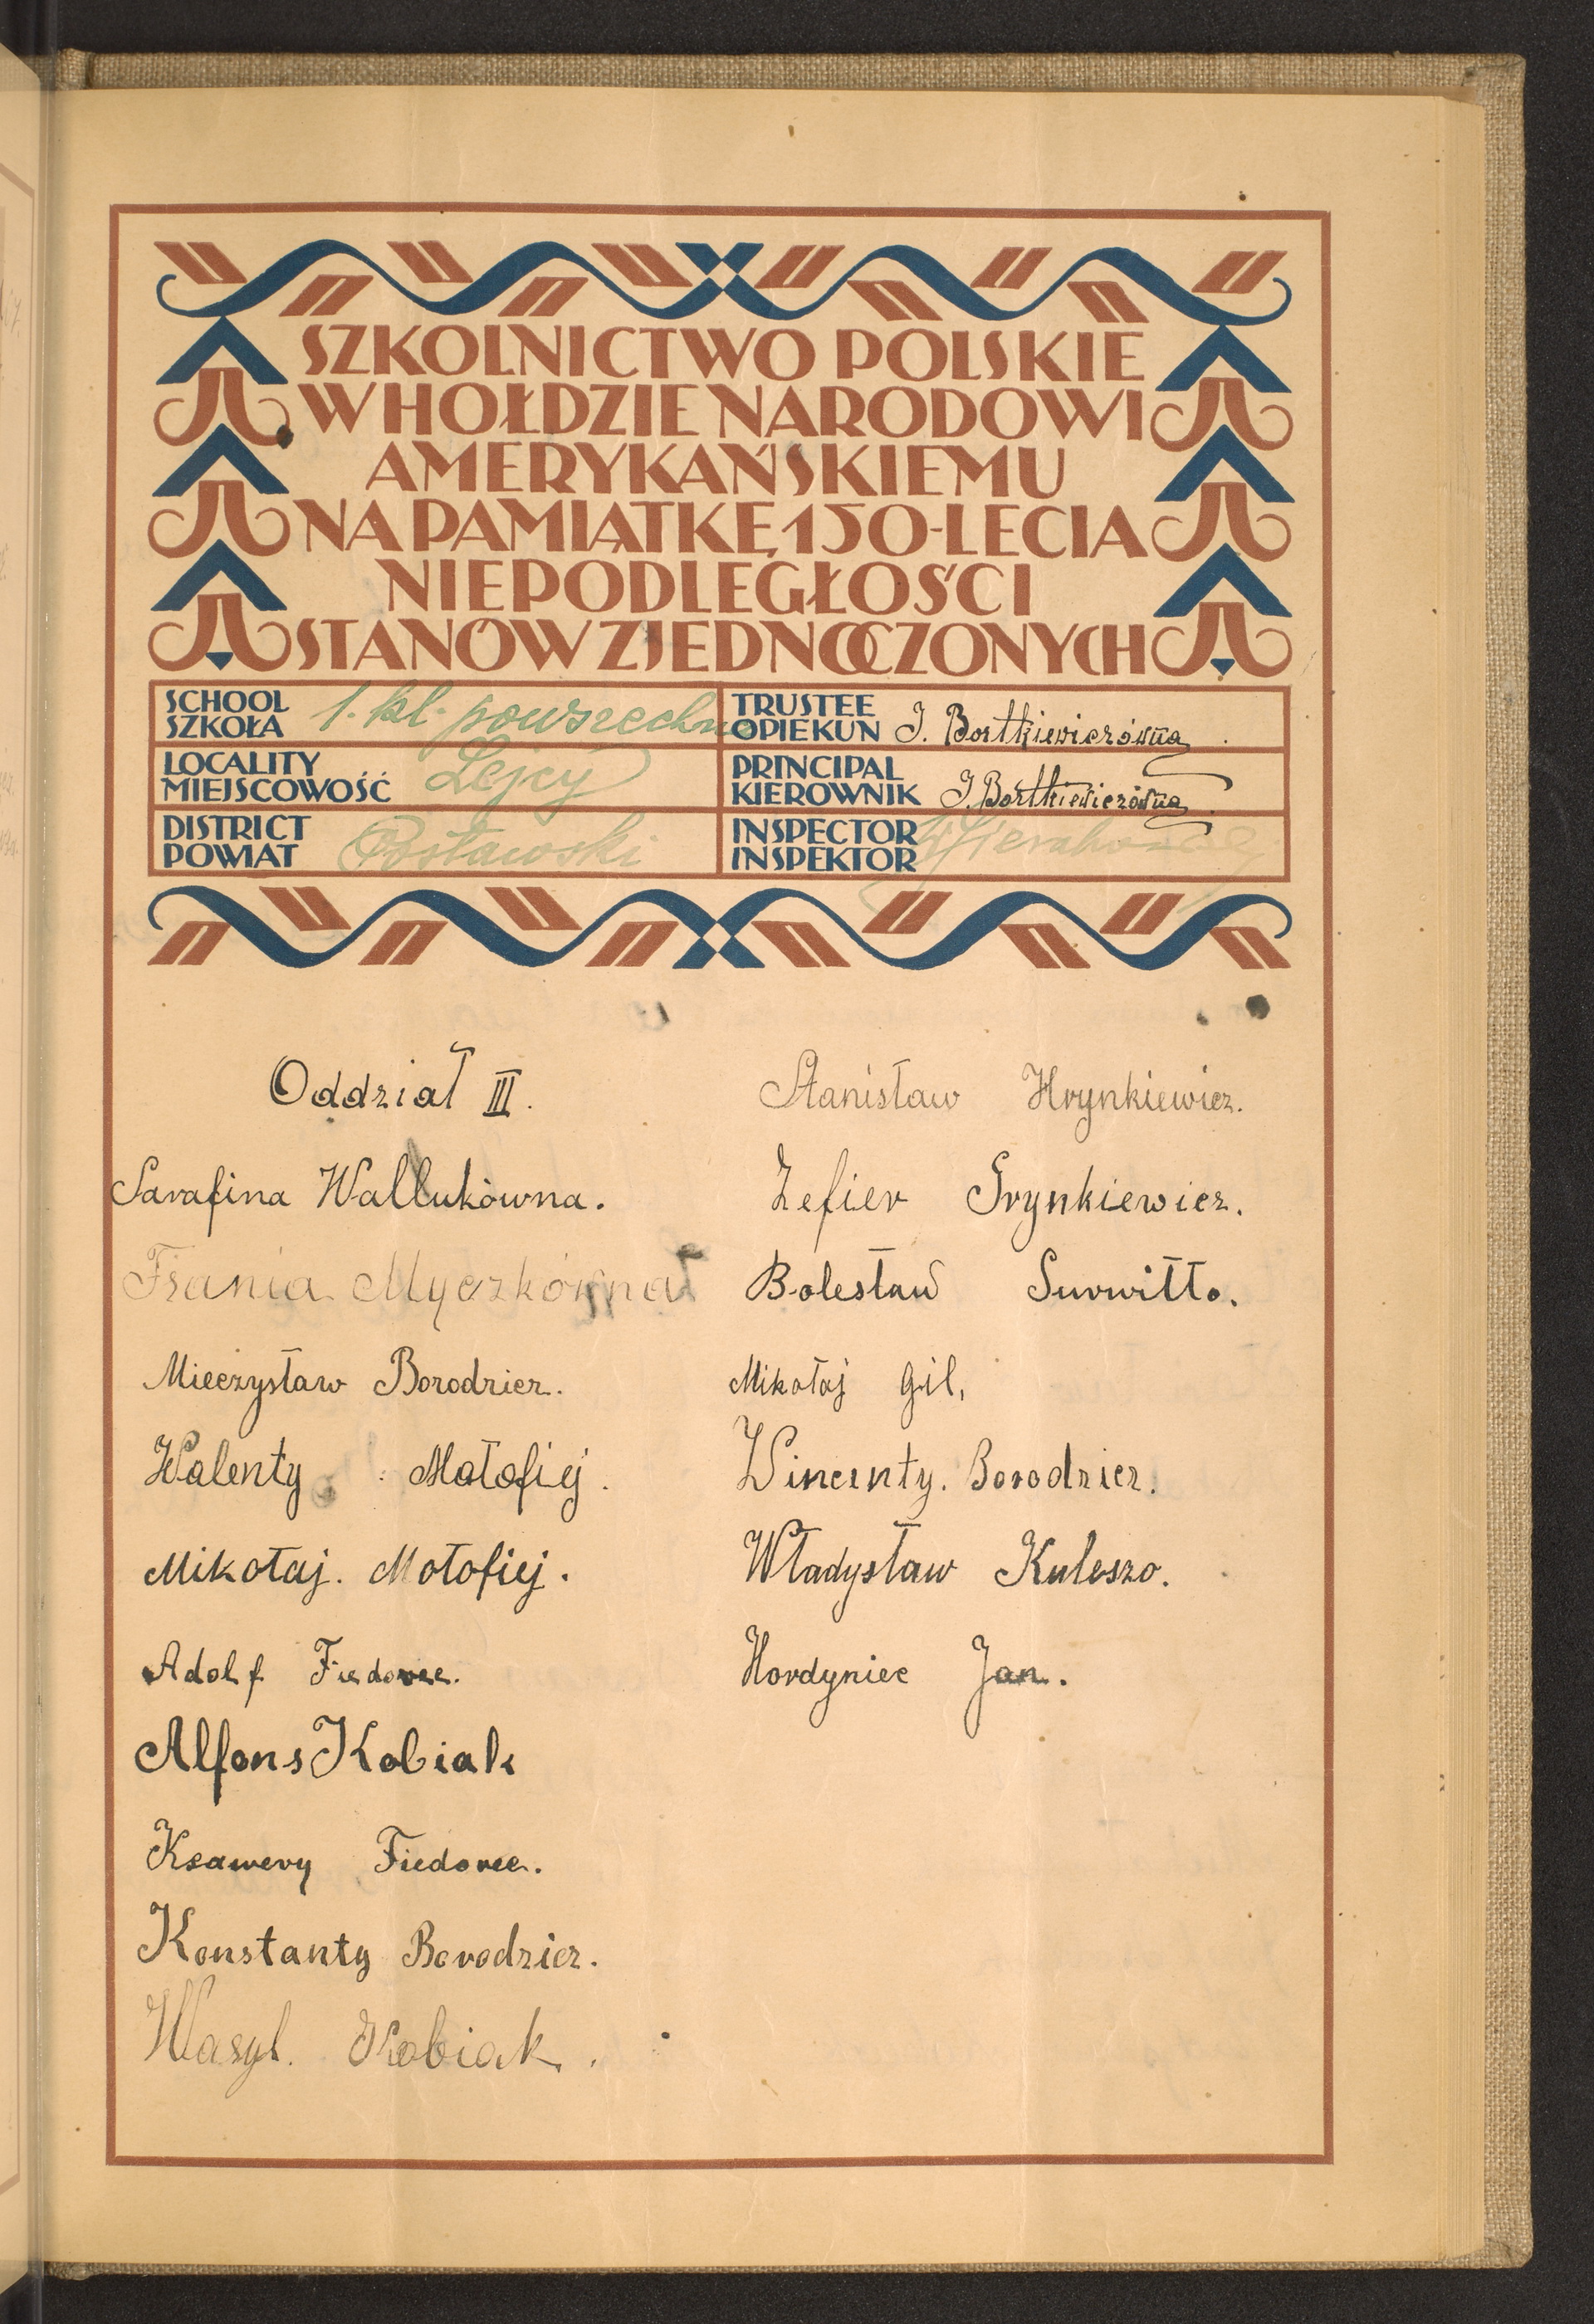 SZKOLNICTWO POLSKIE
W HOŁDZIE NARODOWI
AMERYKAŃSKIEMU
NA PAMIĄTKĘ 150-LECIA
NIEPODLEGŁOŚCI
STANÓW ZJEDNOCZONYCH
SCHOOL
SZKOŁA 1. kl. powszechna
TRUSTEE
OPIEKUN J. Bortkiewiczówna.
LOCALITY
MIEJSCOWOŚĆ Lejcy
PRINCIPAL
KIEROWNIK J. Bortkiewiczówna.
DISTRICT
POWIAT Postawski
INSPECTOR
INSPEKTOR
Oddział III.
Sarafina Wallukówna.
Frania Myczkówna
Mieczysław Borodzicz.
Walenty Małofiej.
Mikołaj. Mołofiej.
Adolf Fiedorec.
Alfons Kobiak
Ksawery Fiedorec.
Konstanty Borodzicz.
Wasyl. Kobiak.
Stanisław Hrynkiewicz.
Zefier Grynkiewicz.
Bolesław Surwiłło.
Mikołaj Gil,
Wincenty. Borodzicz.
Władysław Kuleszo.
Hordyniec Jan.